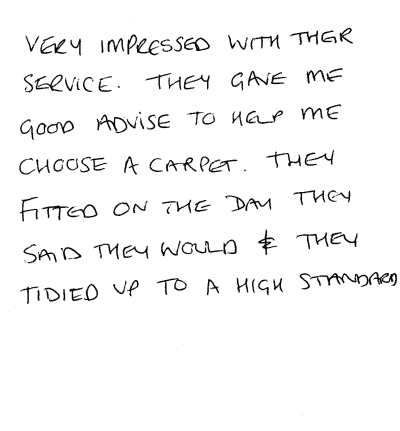 VERY IMPRESSED WITH THEIR
SERVICE. THEY GAVE ME
GOOD ADVISE TO HELP ME
CHOOSE A CARPET. THEY
FITTED ON THE DAY THEY
SAID THEY WOULD & THEY
TIDIED UP TO A HIGH STANDARD